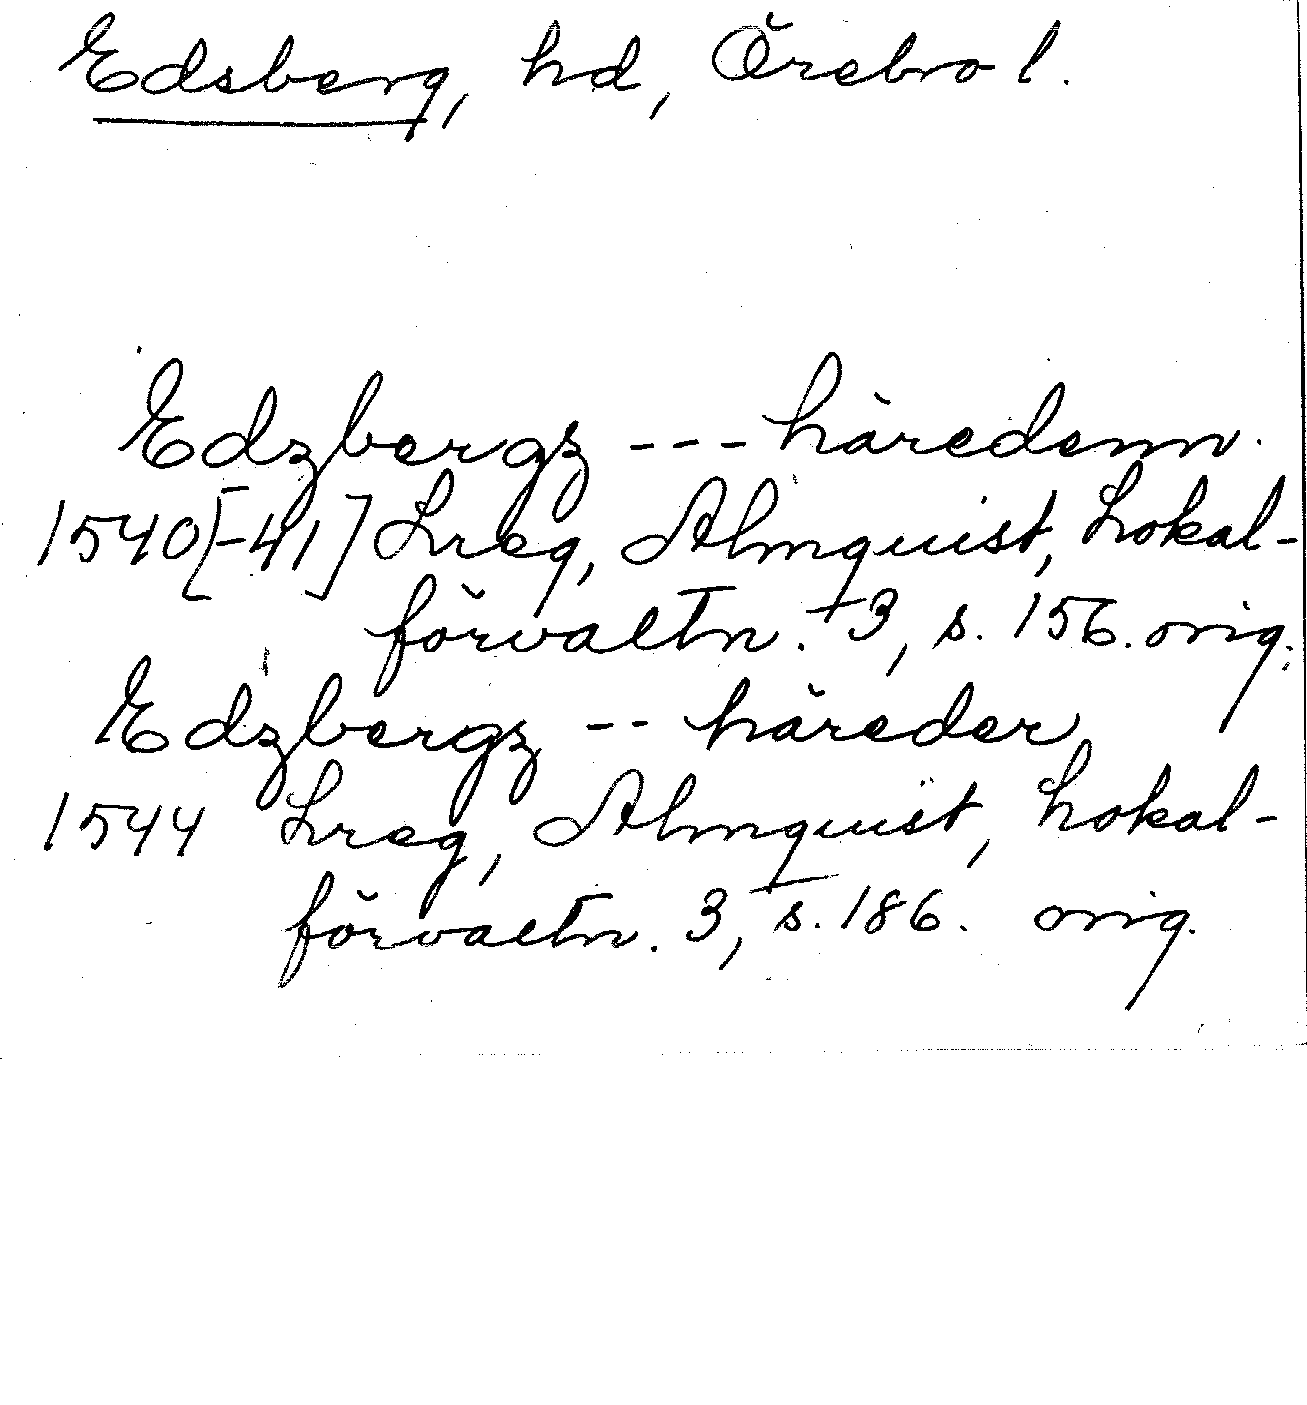 Edsberg, hd, Örebro l.
Edzbergz --- häredenn.
1540[-41] Lreg, Almquist, Lokal-
förvaltn. 3, s. 156. orig.
Edzbergz -- häreder
1544 Lreg, Almquist, Lokal-
förvaltn. 3, s. 186. orig.